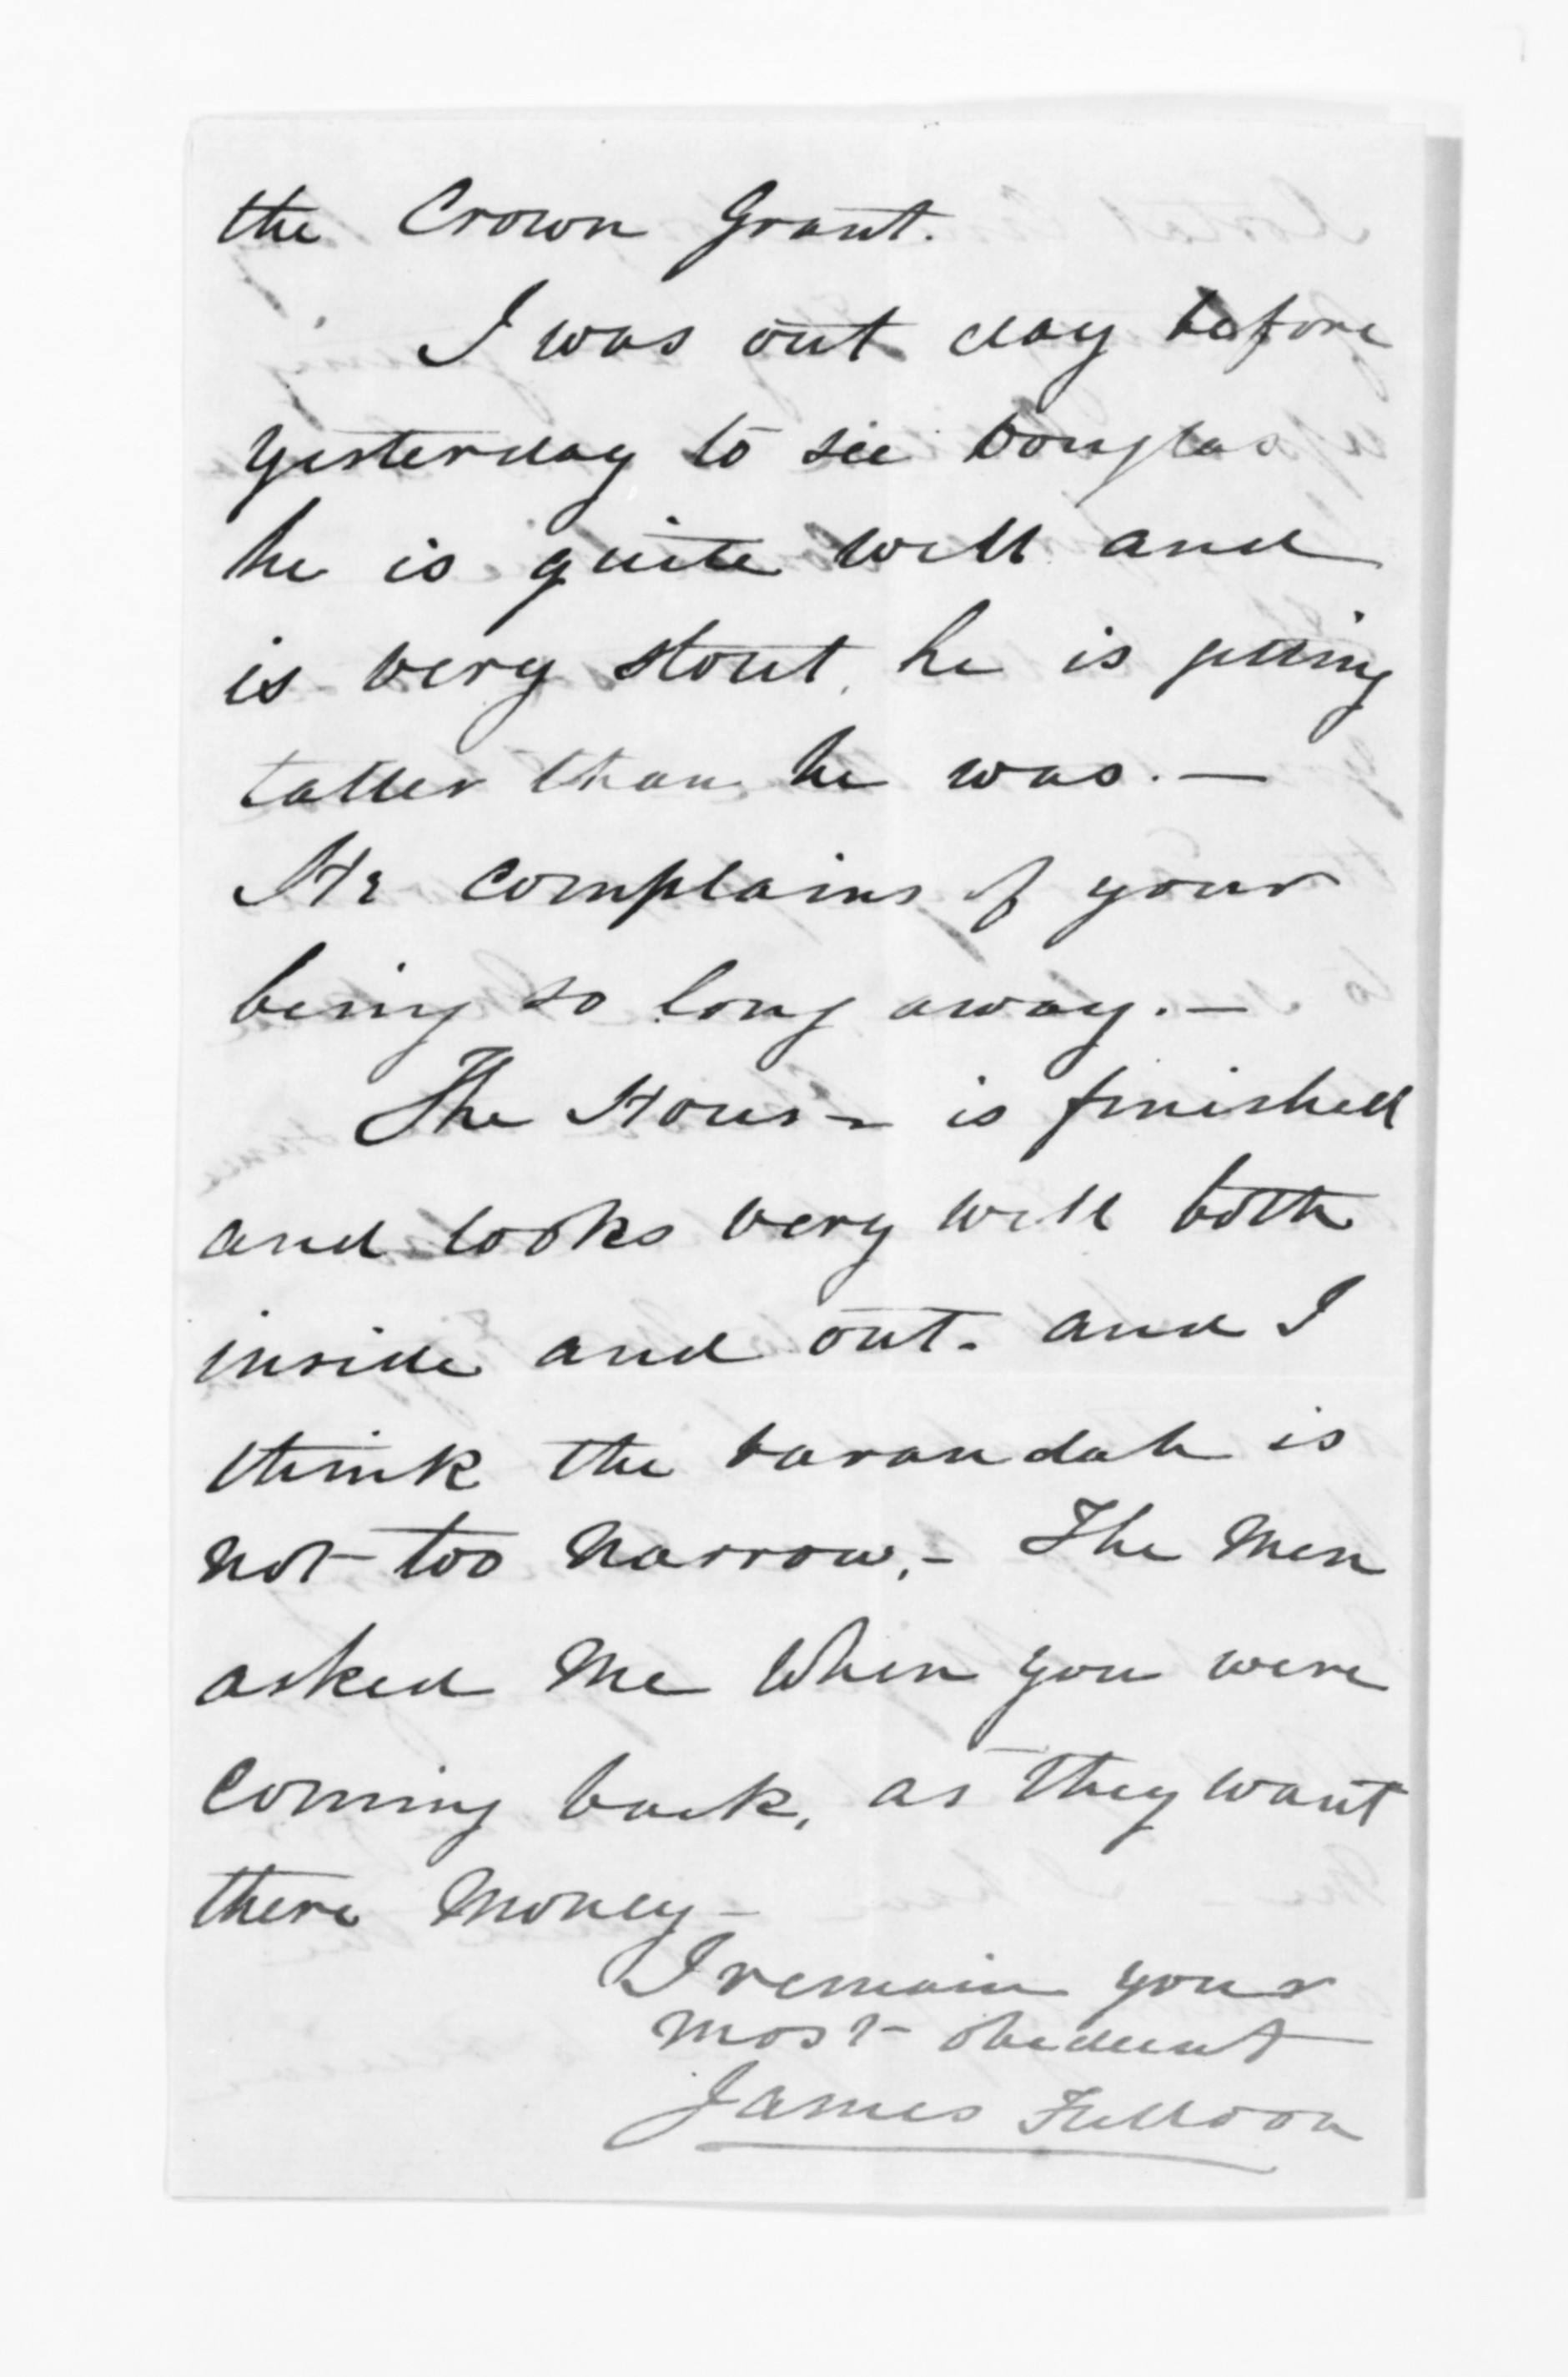 the Crown Grant.
I was out day before
yesterday to see Douglas
he is quite well and
is very stout, he is getting
taller than he was. —
He complains of your
being so long away. —
The House is finished
and looks very well both
inside and out. and I
think the varandah is
not too narrow, - The Men
asked Me When you were
coming back, as they want
there Money -
I remain your
Most obedient
James Fulloon